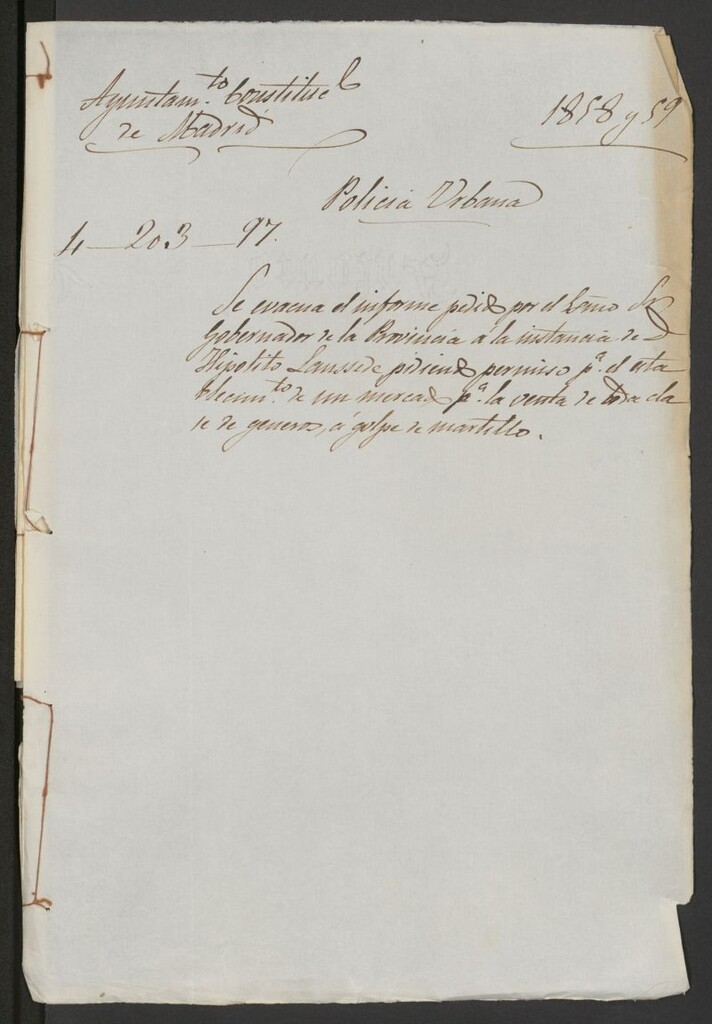 Ayuntam.to Constituc.l
de Madrid
1858 y 59
Policia Urbana
4-203-97.
Se evacua el informe pedido por el Exmo Sr
Gobernador de la Provincia á la instancia de D
Hipolito pidiendo permiso p.a el esta
blecim.to de un mercado p.a la venta de toda cla
se de generos, á golpe de martillo.